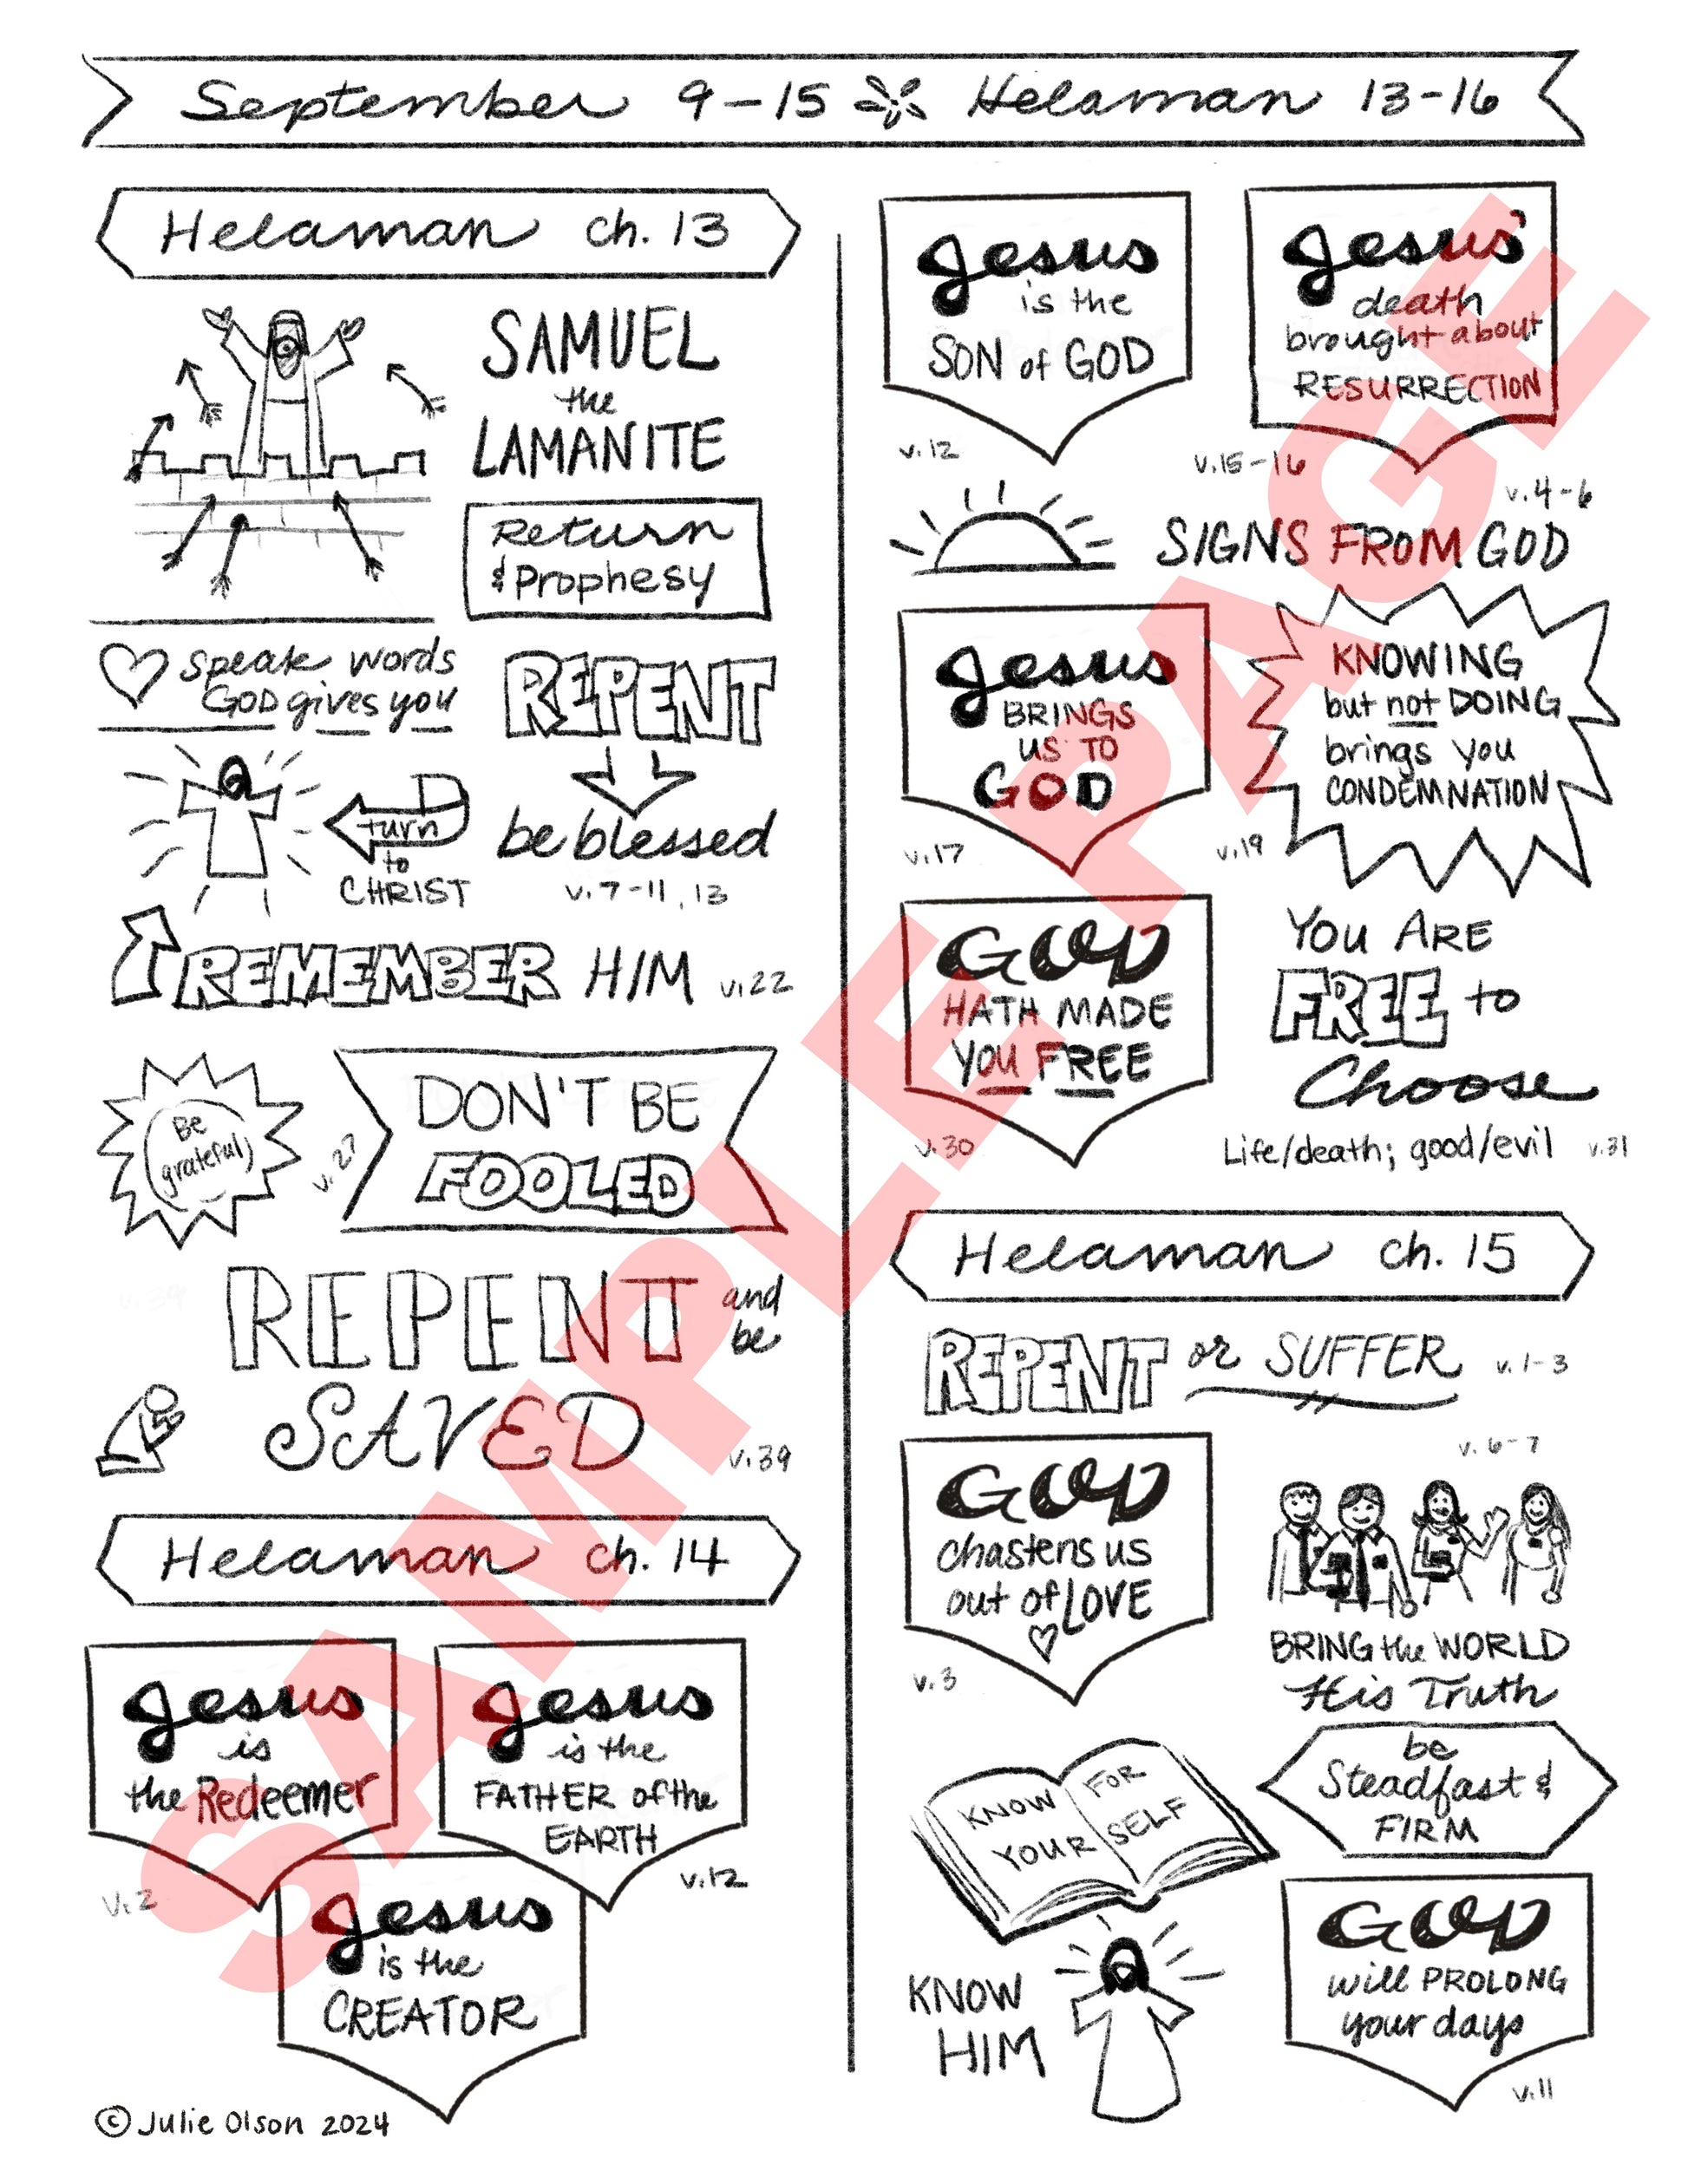 September 9-15 Helaman 13-16
Helaman ch. 13
SAMUEL
the
LAMANITE
Return
& Prophesy
Speak words
GOD gives you
REPENT
turn
to
CHRIST
be blessed
v. 7-11, 13
REMEMBER HIM v. 22
Be
grateful
v. 27
DON'T BE
FOOLED
REPENT and
be
SAVED
v. 39
Helaman ch. 14
Jesus
is
the Redeemer
v. 2
Jesus
is the
FATHER of the
EARTH
v. 12
Jesus
is the
CREATOR
© Julie Olson 2024
Jesus
is the
SON of GOD
v. 12
Jesus'
death
brought about
RESURRECTION
v. 15-16
v. 4-6
SIGNS FROM GOD
Jesus
BRINGS
US TO
GOD
v. 17
KNOWING
but not DOING
brings you
CONDEMNATION
v. 19
GOD
HATH MADE
YOU FREE
v. 30
YOU ARE
FREE to
Choose
Life/death; good/evil v. 31
Helaman ch. 15
REPENT or SUFFER v. 1-3
GOD
chastens us
out of LOVE
v. 3
v. 6-7
BRING the WORLD
His Truth
KNOW
YOUR
FOR
SELF
be
Steadfast &
FIRM
KNOW
HIM
GOD
will PROLONG
your days
v. 11
SAMPLE PAGE